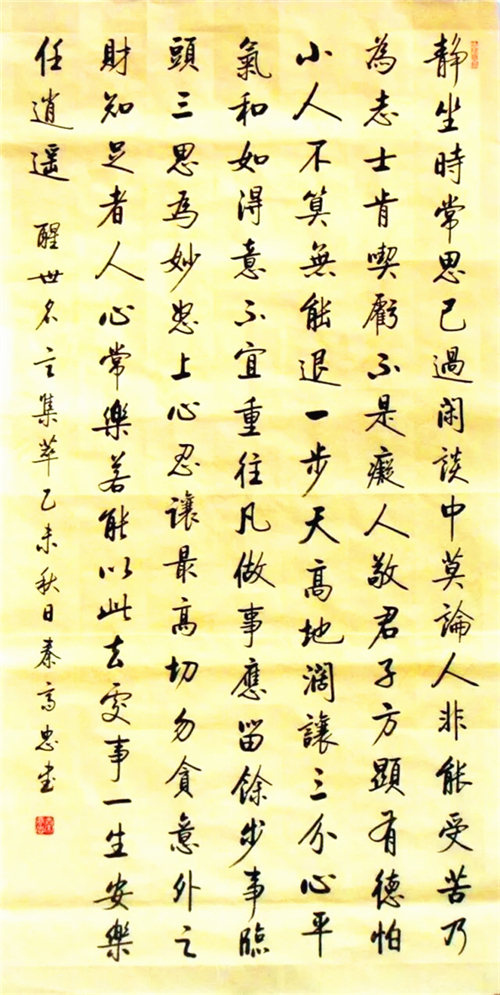 静坐時常思己過闲談中莫論人非能受苦乃
為志士肯喫虧不是癡人敬君子方顯有德怕
小人不算無能退一步天高地濶讓三分心平
氣和如得意不宜重往凡做事應留餘步事臨
頭三思為妙怒上心忍讓最高切勿貪意外之
財知足者人心常樂若能以此去處事一生安樂
任逍遥 醒世名言集萃乙未秋日秦高忠书